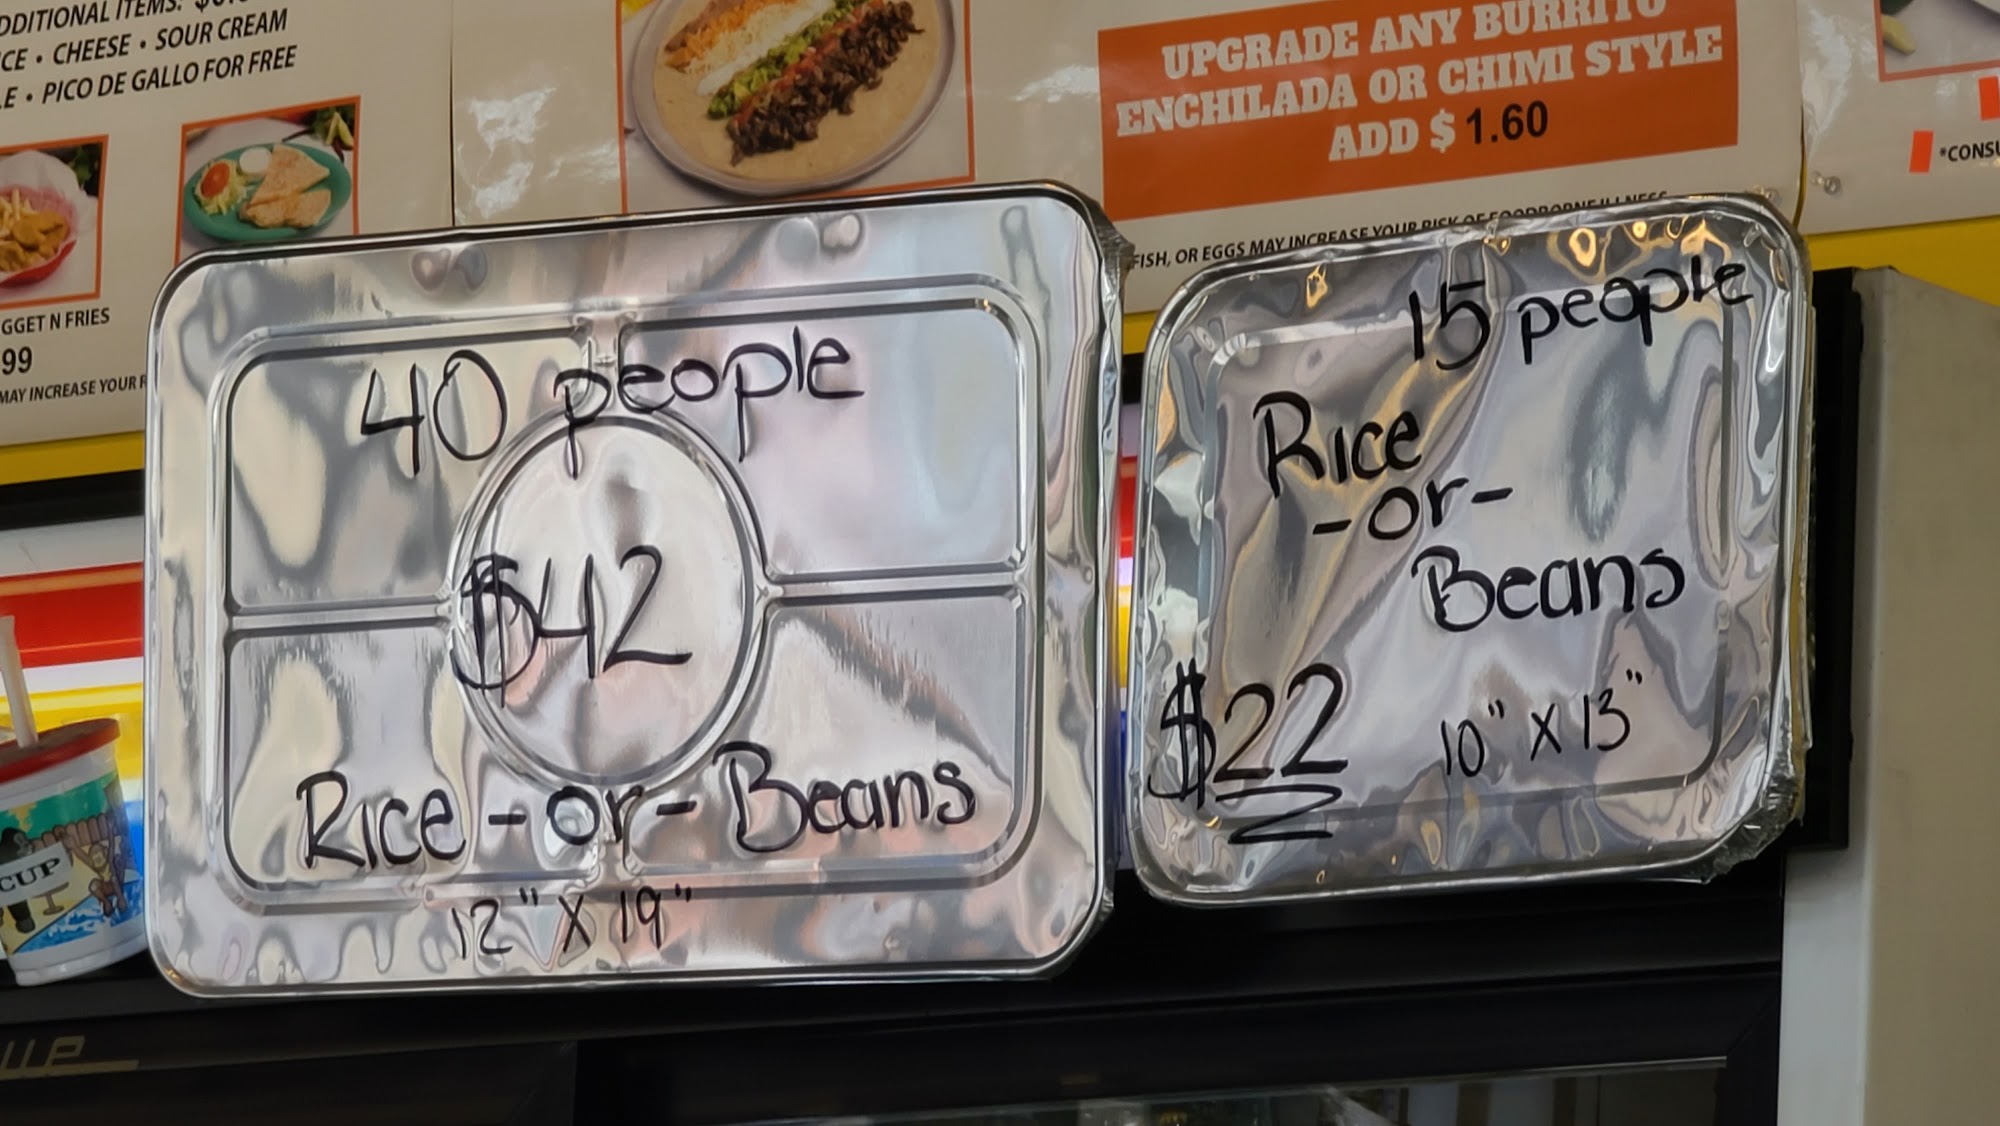 CHEESE • SOUR CREAM
• PICO DE GALLO FOR FREE
UPGRADE ANY BURRITO
ENCHILADA OR CHIMI STYLE
ADD $ 1.60
FISH, OR EGGS MAY INCREASE YOUR RISK OF FOODBORNE ILLNESS
N FRIES
99
MAY INCREASE YOUR
40 people
$42
Rice -or- Beans
12" X 19"
15 people
Rice
-or-
Beans
$22
10" X 13"
CUP